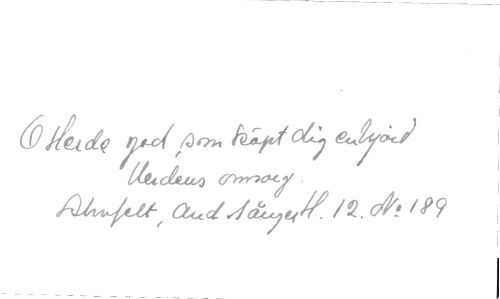 O Herde god, som köpt dig en hjord
Herdens omsorg.
Ahnfelt, And Sånger H. 12. No 189